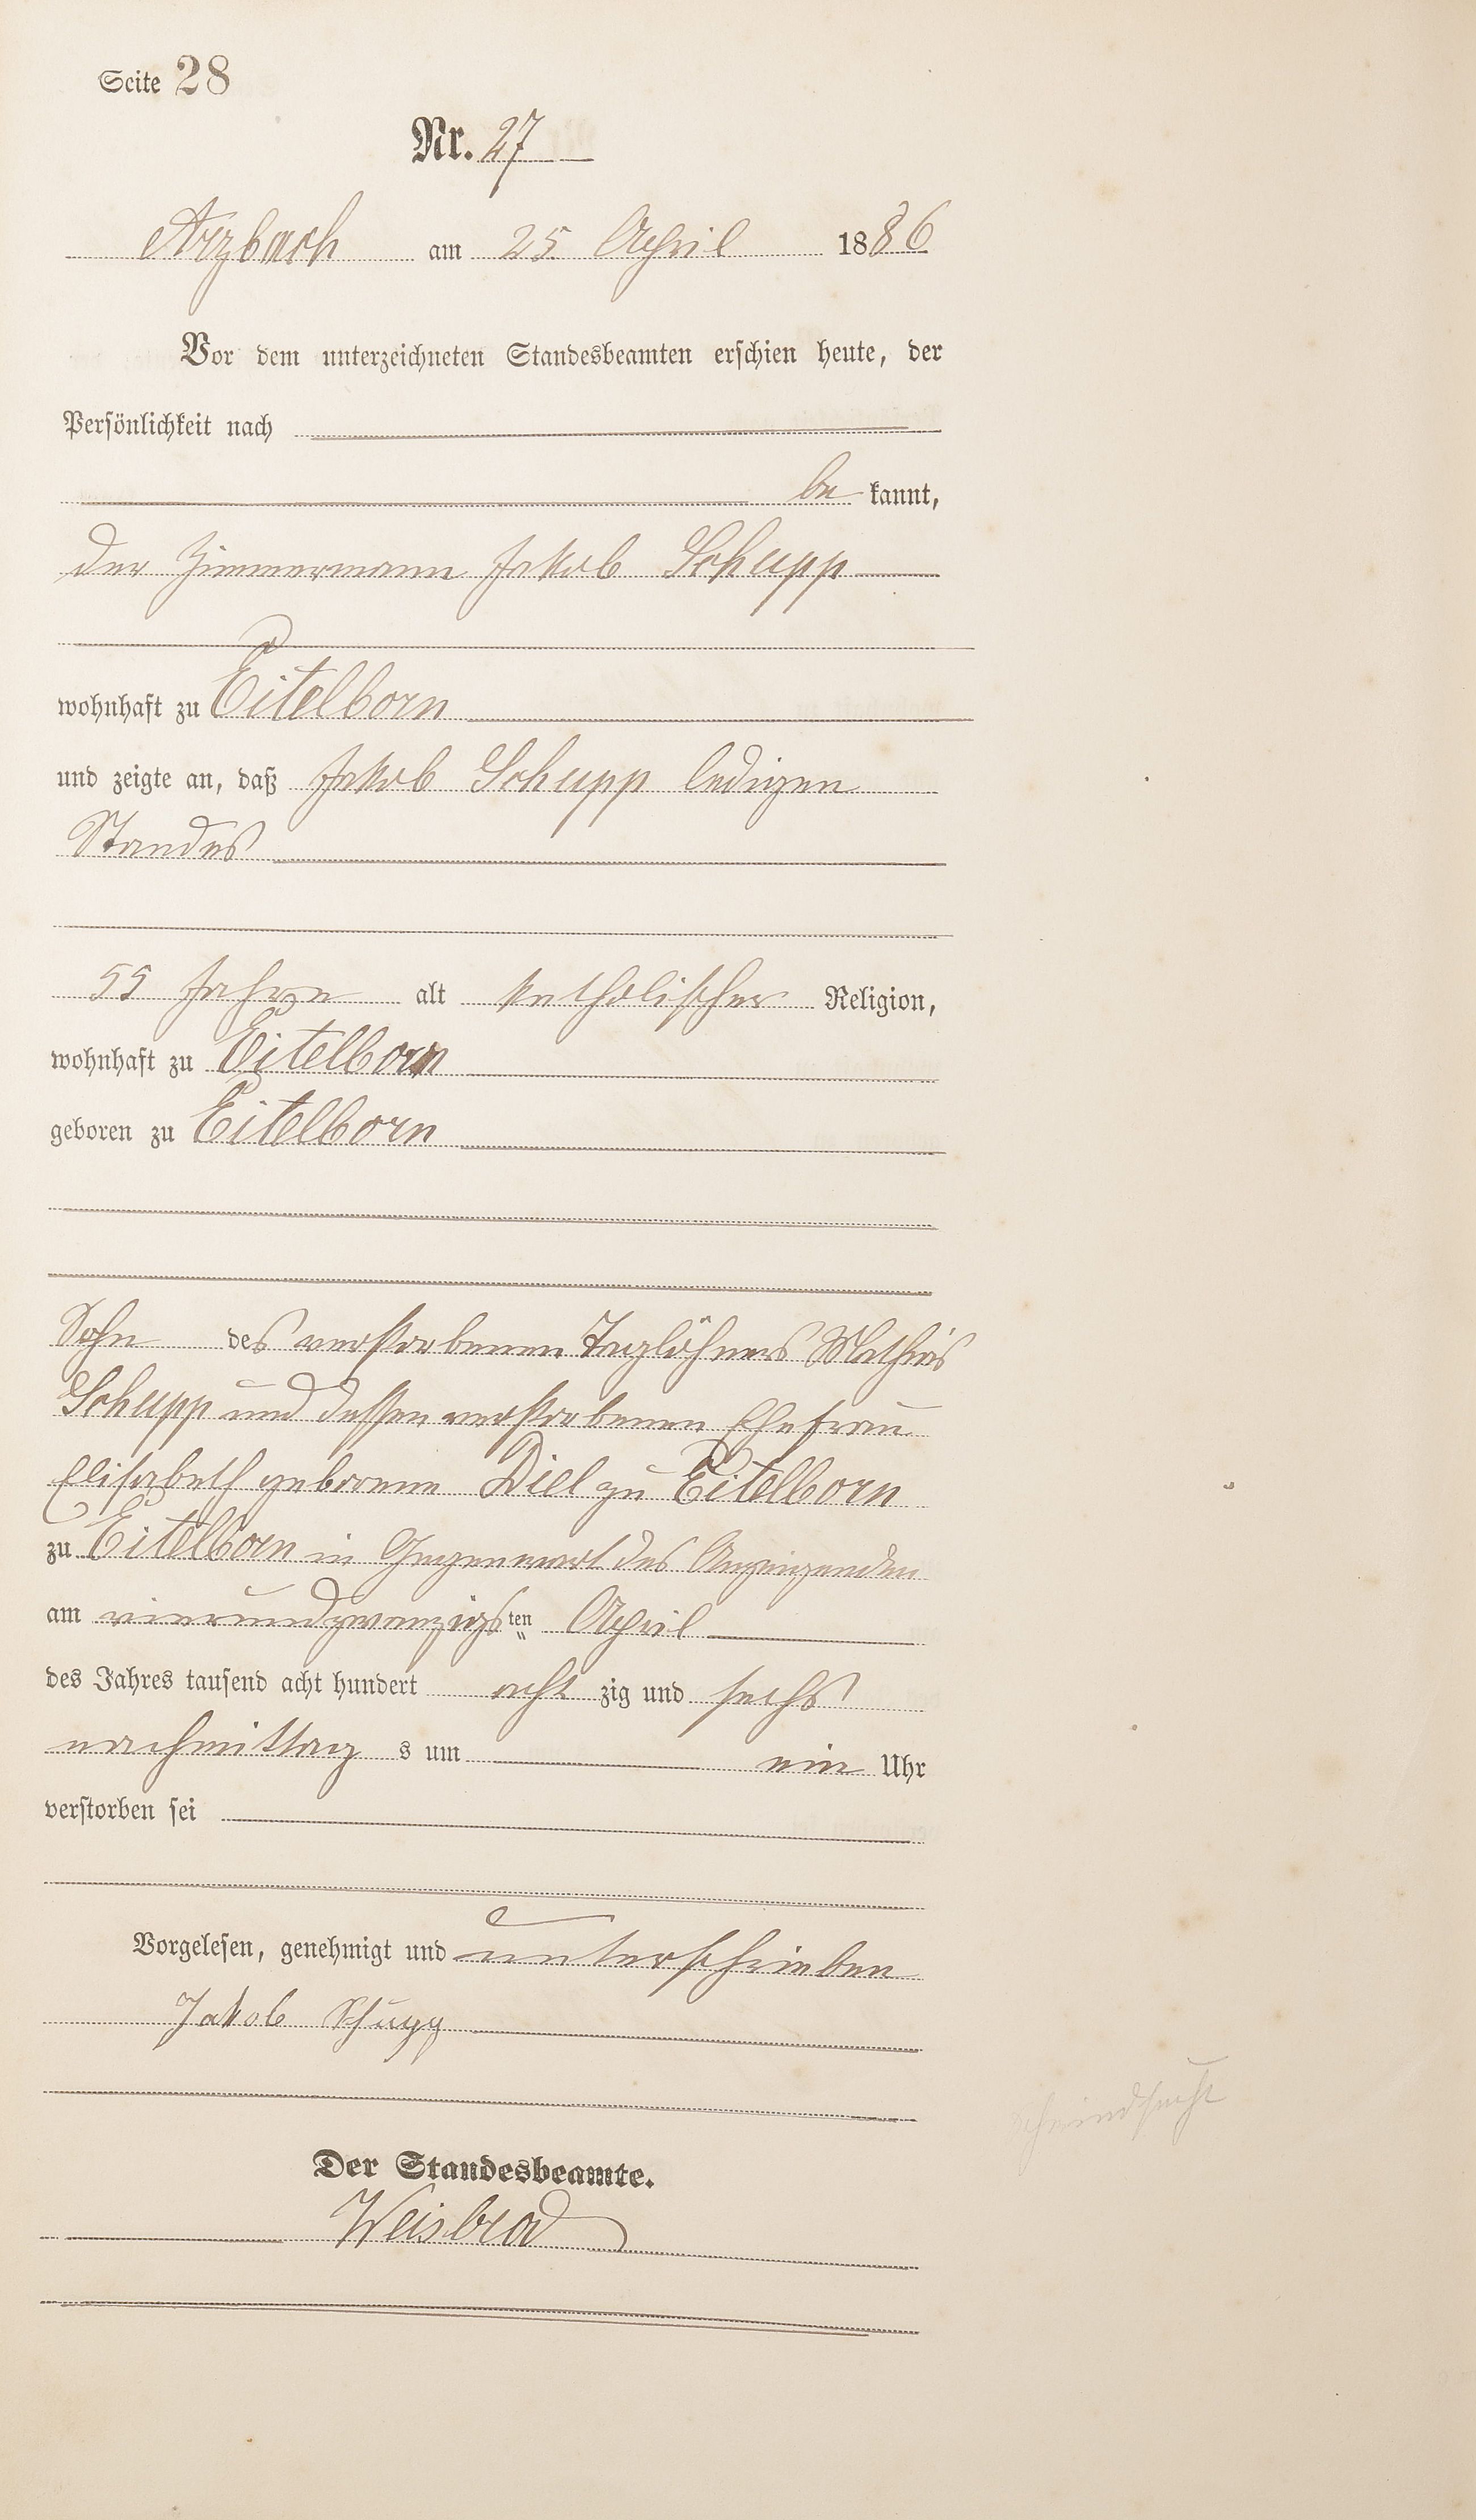 Seite 28
Nr. 27
Arzbach am 25 April 1886
Vor dem unterzeichneten Standesbeamten erschien heute, der
Persönlichkeit nach
be kannt,
der Zimmermann Jakob Schupp
wohnhaft zu Eitelborn
und zeigte an, daß Jakob Schupp ledigen
Standes
55 Jahre alt katholischer Religion,
wohnhaft zu Eitelborn
geboren zu Eitelborn
Sohn des verstorbenen Taglöhners Mathias
Schupp und dessen verstorbenen Ehefrau
Elisabeth geborene Diel zu Eitelborn
zu Eitelborn in Gegenwart des Anzeigenden
am vierundzwanzigsten April
des Jahres tausend acht hundert acht zig und sechs
nachmittag s um ein Uhr
verstorben sei
Vorgelesen, genehmigt und unterschrieben
Jakob Schupp
Schwindsucht
Der Standesbeamte.
Weisbrod